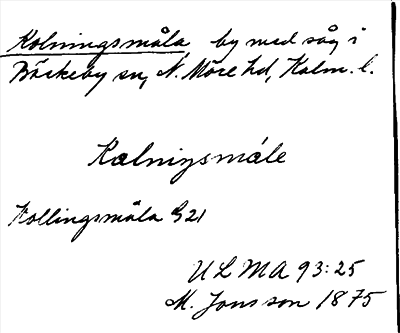 Kolningsmåla, by med såg i
Bäckeby sn, N. Möre hd, Kalm. l.
Kalningsmåle
Kollingsmåla G21
ULMA 93:25
M. Jonsson 1875